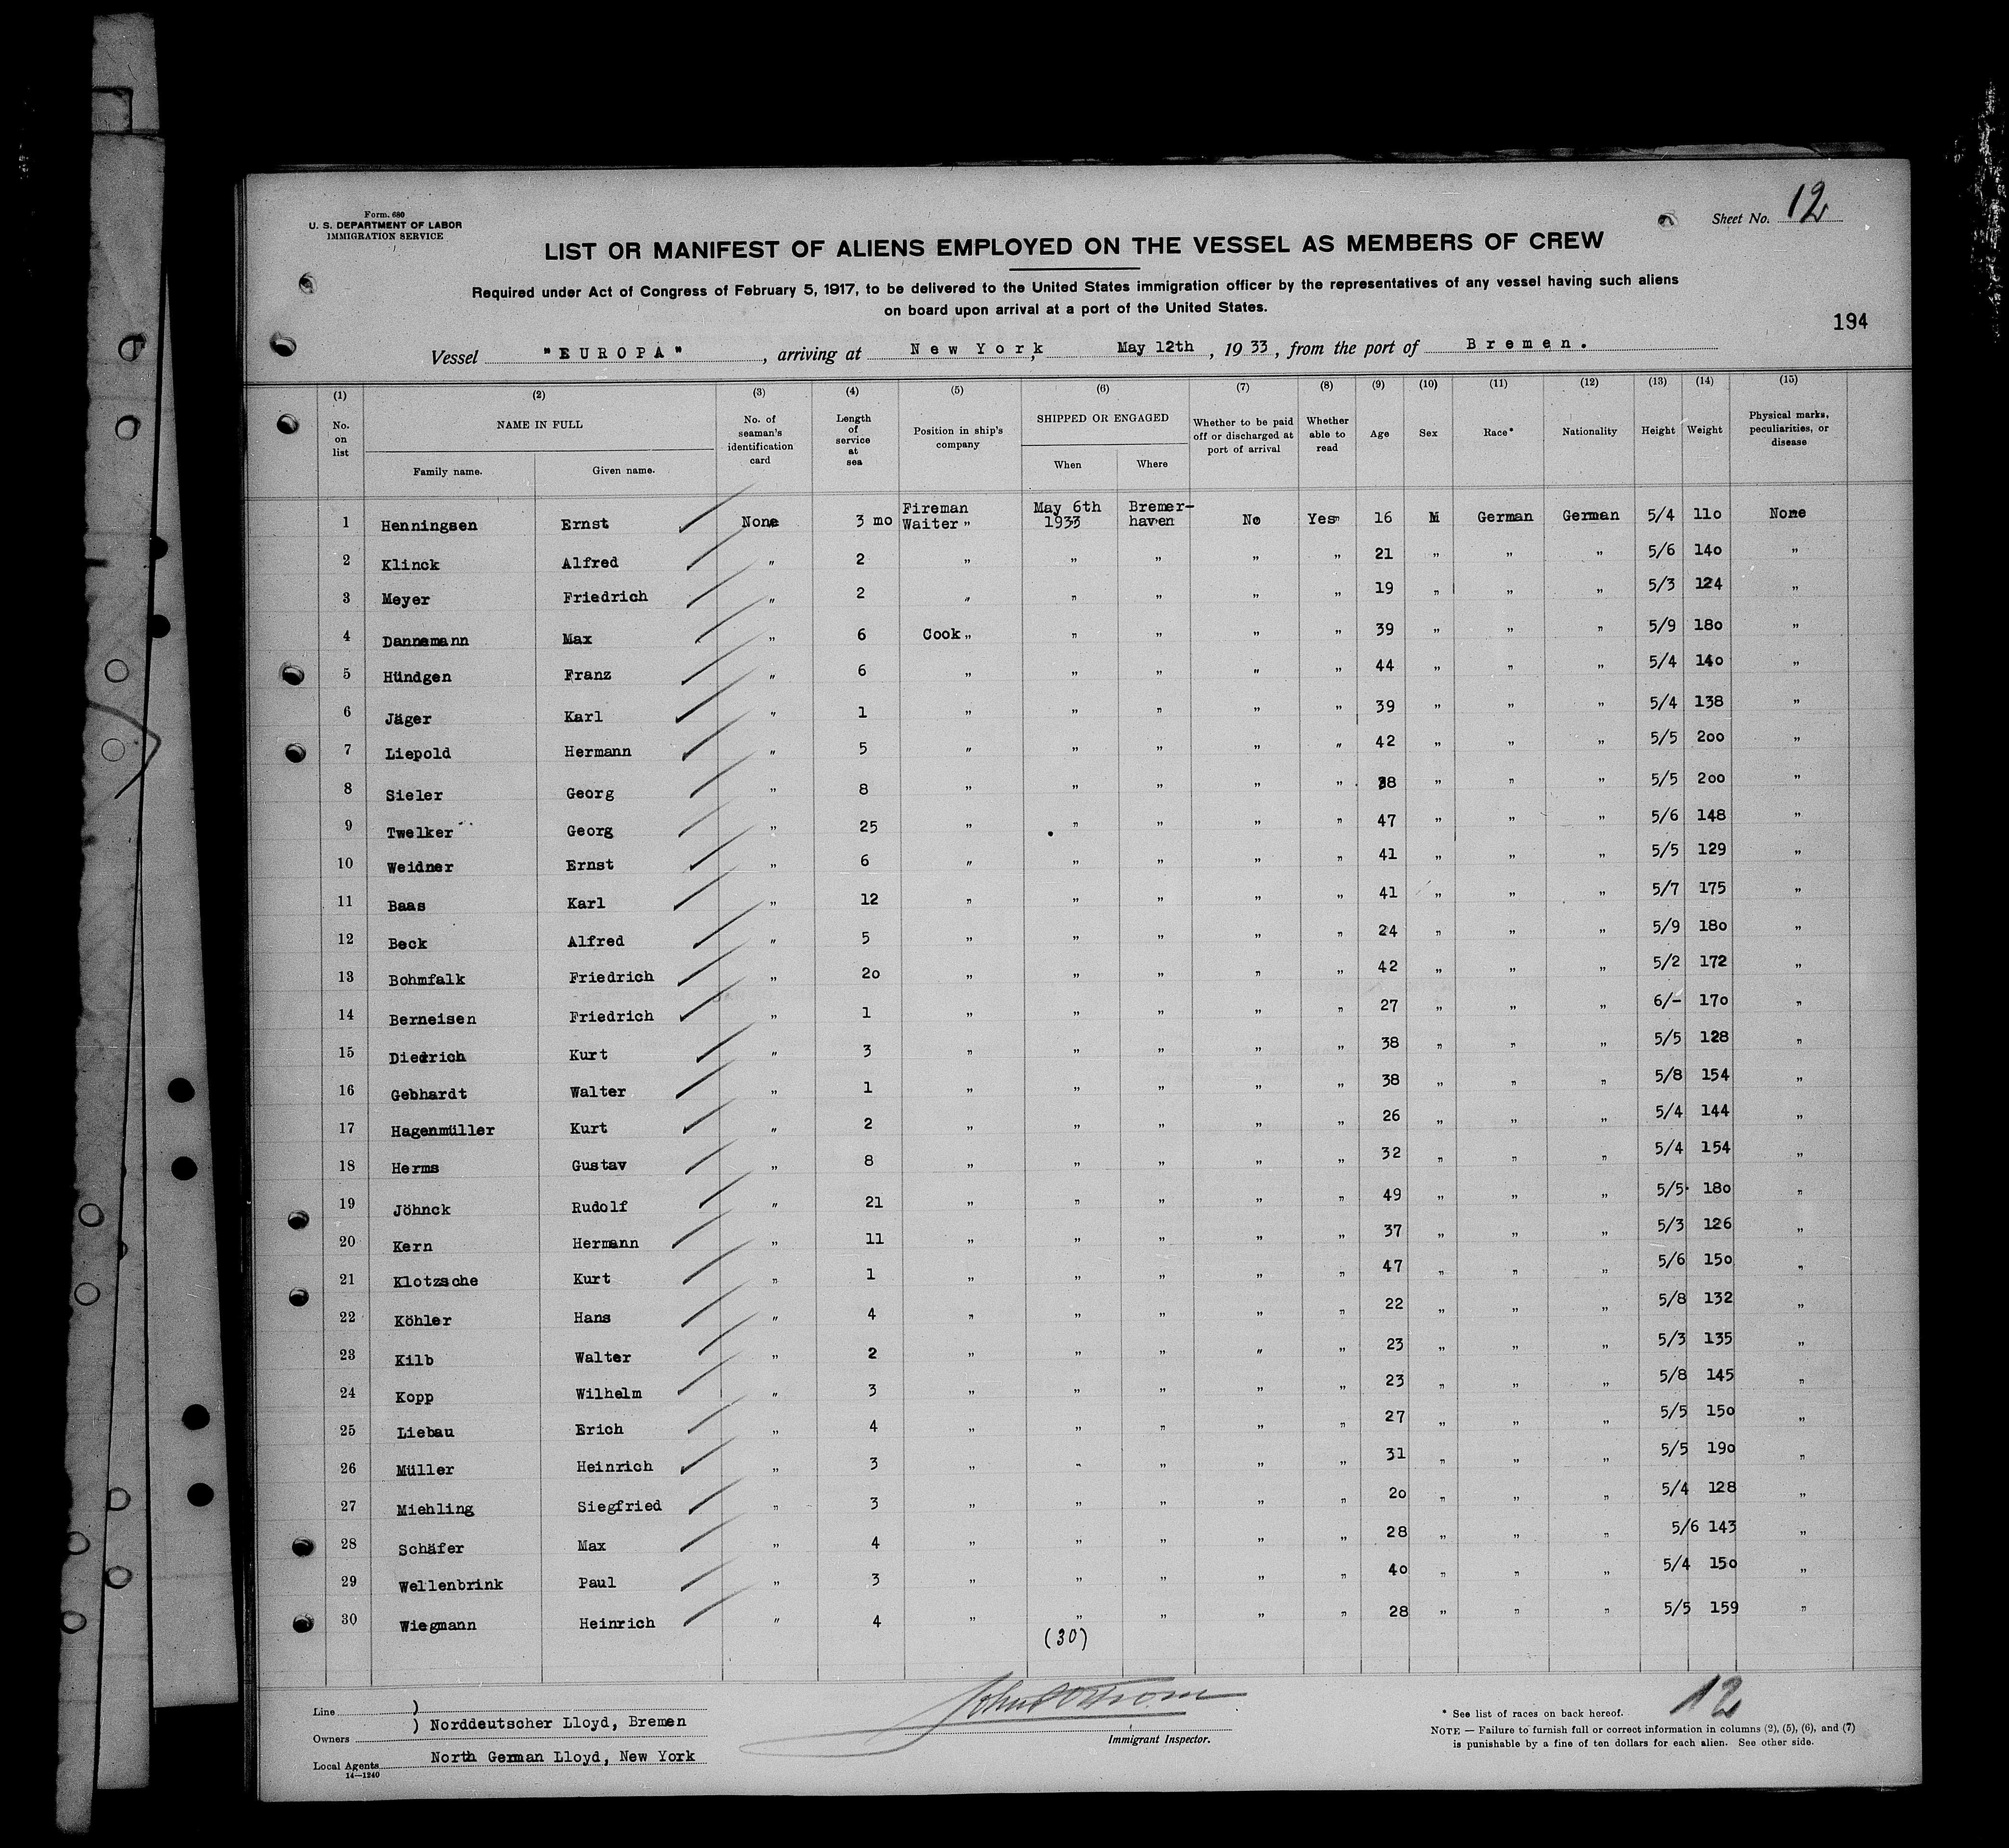 Form. 680
U. S. DEPARTMENT OF LABOR
IMMIGRATION SERVICE
Sheet No. 12
LIST OR MANIFEST OF ALIENS EMPLOYED ON THE VESSEL AS MEMBERS OF CREW
Required under Act of Congress of February 5, 1917, to be delivered to the United States immigration officer by the representatives of any vessel having such aliens
on board upon arrival at a port of the United States.
194
Vessel "EUROPA", arriving at New York, May 12th, 1933, from the port of Bremen.
(1) (2) (3) (4) (5) (6) (7) (8) (9) (10) (11) (12) (13) (14) (15)
No. on list NAME IN FULL Family name. Given name. No. of seaman's identification card Length of service at sea Position in ship's company SHIPPED OR ENGAGED When Where Whether to be paid off or discharged at port of arrival Whether able to read Age Sex Race* Nationality Height Weight Physical marks, peculiarities, or disease
Fireman May 6th Bremer-
1 Henningsen Ernst None 3 mo Waiter " 1933 haven No Yes 16 M German German 5/4 110 None
2 Klinck Alfred " 2 " " " " " 21 " " " 5/6 140 "
3 Meyer Friedrich " 2 " " " " " 19 " " " 5/3 124 "
4 Dannemann Max " 6 Cook " " " " " 39 " " " 5/9 180 "
5 Hündgen Franz " 6 " " " " " 44 " " " 5/4 140 "
6 Jäger Karl " 1 " " " " " 39 " " " 5/4 138 "
7 Liepold Hermann " 5 " " " " " 42 " " " 5/5 200 "
8 Sieler Georg " 8 " " " " " 38 " " " 5/5 200 "
9 Twelker Georg " 25 " " " " " 47 " " " 5/6 148 "
10 Weidner Ernst " 6 " " " " " 41 " " " 5/5 129 "
11 Baas Karl " 12 " " " " " 41 " " " 5/7 175 "
12 Beck Alfred " 5 " " " " " 24 " " " 5/9 180 "
13 Bohmfalk Friedrich " 20 " " " " " 42 " " " 5/2 172 "
14 Berneisen Friedrich " 1 " " " " " 27 " " " 6/- 170 "
15 Diedrich Kurt " 3 " " " " " 38 " " " 5/5 128 "
16 Gebhardt Walter " 1 " " " " " 38 " " " 5/8 154 "
17 Hagenmüller Kurt " 2 " " " " " 26 " " " 5/4 144 "
18 Herms Gustav " 8 " " " " " 32 " " " 5/4 154 "
19 Jöhnck Rudolf " 21 " " " " " 49 " " " 5/5 180 "
20 Kern Hermann " 11 " " " " " 37 " " " 5/3 126 "
21 Klotzsche Kurt " 1 " " " " " 47 " " " 5/6 150 "
22 Köhler Hans " 4 " " " " " 22 " " " 5/8 132 "
23 Kilb Walter " 2 " " " " " 23 " " " 5/3 135 "
24 Kopp Wilhelm " 3 " " " " " 23 " " " 5/8 145 "
25 Liebau Erich " 4 " " " " " 27 " " " 5/5 150 "
26 Müller Heinrich " 3 " " " " " 31 " " " 5/5 190 "
27 Miehling Siegfried " 3 " " " " " 20 " " " 5/4 128 "
28 Schäfer Max " 4 " " " " " 28 " " " 5/6 143 "
29 Wellenbrink Paul " 3 " " " " " 40 " " " 5/4 150 "
30 Wiegmann Heinrich " 4 " " " " " 28 " " " 5/5 159 "
(30)
Line )
Owners ) Norddeutscher Lloyd, Bremen
Local Agents North German Lloyd, New York
14—1240
Immigrant Inspector.
12
* See list of races on back hereof.
NOTE — Failure to furnish full or correct information in columns (2), (5), (6), and (7)
is punishable by a fine of ten dollars for each alien. See other side.